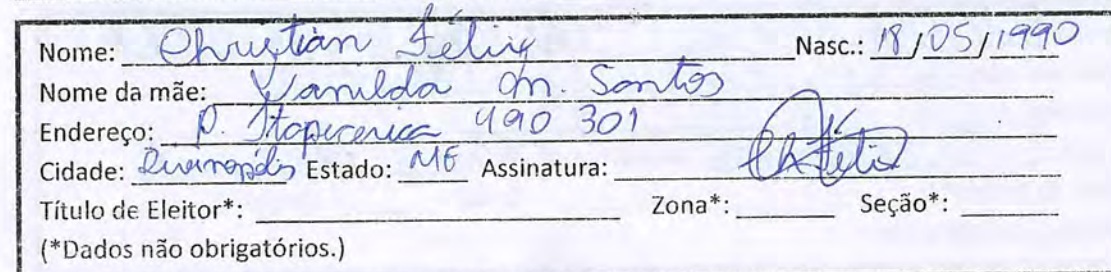 Nome: Christian Félix Nasc.: 18/05/1990
Nome da mãe: Vanilda M. Santos
Endereço: R. Itapecerica 490 301
Cidade: Divinópolis Estado: MG Assinatura:
Título de Eleitor*: Zona*: Seção*:
(*Dados não obrigatórios.)